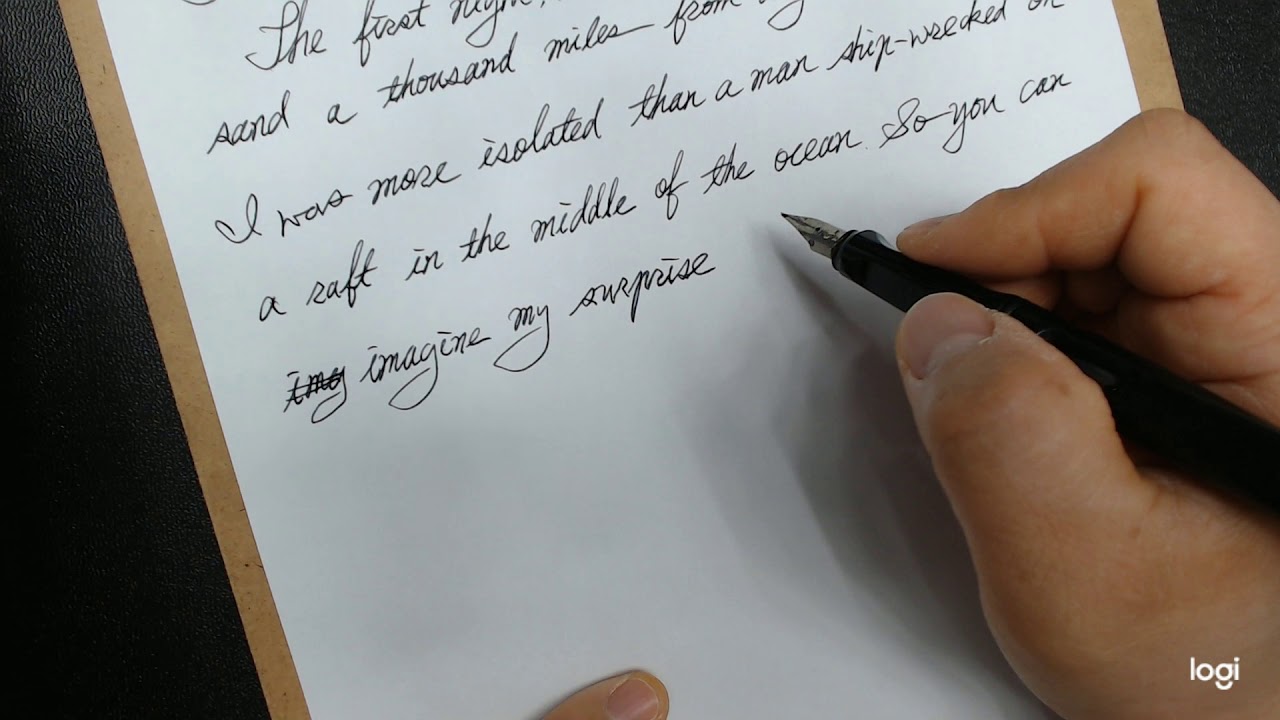 The first night,
sand a thousand miles from
I was more isolated than a man ship-wrecked on
a raft in the middle of the ocean. So you can
imy imagine my surprise
logi